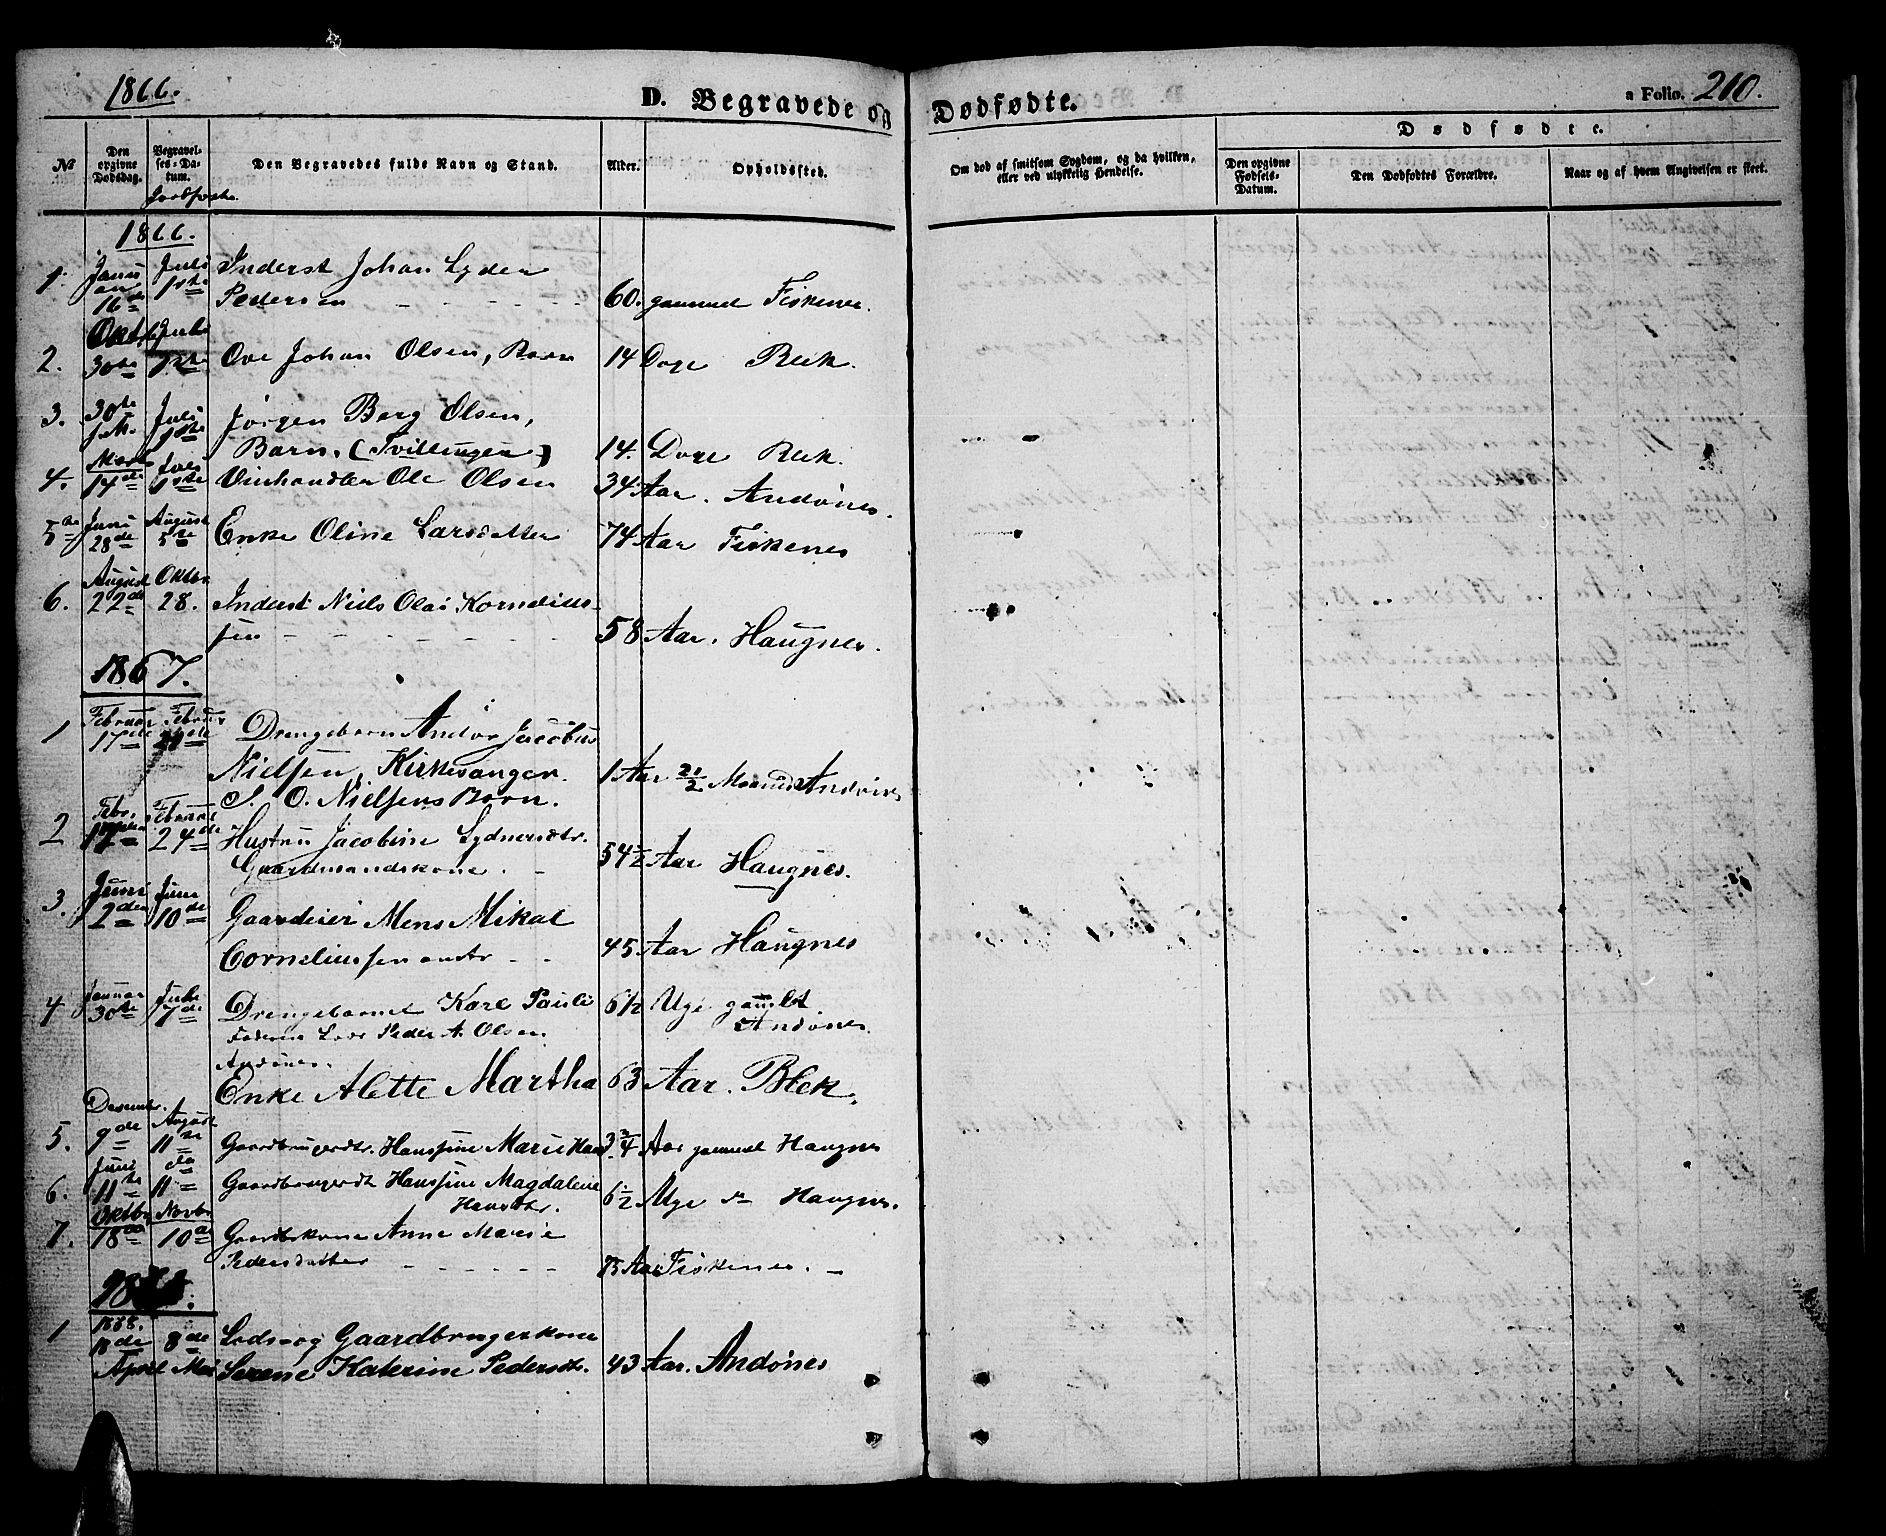 1866.
D. Begravede og Dødfødte.
a Folio. 210.
No
Den opgivne Dødsdag.
Begravelses-Datum.
Jordfæste
Den Begravedes fulde Navn og Stand.
Alder.
Opholdssted.
Om død af smitsom Sygdom, og da hvilken, eller ved ulykkelig Hendelse.
Dødfødte.
Den opgivne Fødsels-Datum.
Den Dødfødtes Forældre.
Naar og af hvem Angivelsen er skeet.
1866.
1. Januar 16de Juli 1ste Inderst Johan Lyder
Pedersen - - - - - 60. gammel Fiskenes.
2. Oktb. 30te Juli 1ste Ove Johan Olsen, Barn 14 Dage Blek.
3. 30te s.M. Juli 1ste Jørgen Berg Olsen,
Barn. (Tvillinger) 14. Dage Blek.
4. Marts 14de Juli 1ste Vinhandler Ole Olsen 34 Aar. Andønes.
5te Juni 28de August 5te Enke Oline Larsdatter 74 Aar Fiskenes
6. August 22de Oktbr. 28. Inderst Niels Olai Kornelius-
sen - - - - - 58 Aar. Haugnes.
1867.
1 Februar 17de Februar Drengebarn Andor Jacobus
Nielsen, Kirkesanger
S. O. Nielsens Barn. 1 Aar 2 1/2 Maaned Andønes
2 Febr. 17 Februar 24de Hustru Jacobine Lydersdtr.
Gaardmandskone. - 54 1/2 Aar Haugnes.
3. Juni 2den Juni 10de Gaardeier Mons Mikal
Corneliussen - - 45 Aar Haugnes
4 Januar 30te Juli 7de Drengebarnet Karl Pauli 6 1/2 Uge gamelt
Faderen Lods Peder A. Olsen Andønes.
Andønes.
Enke Alette Martha 63 Aar. Blek.
5. Desembr. 9de August 11te Gaardbrugerdtr. Hanssine Marie Han 3 3/4 Aar gammel Haugnes
6. Juni 11te do 11te Gaardbrugerdt Hanssine Magdalene
Hansdtr. 6 1/2 Uge Haugnes.
7. Oktbr. 18de Novbr 10de Gaardbrkone Anne Marie
Pedersdatter - - - - - 73 Aar Fiskenes. -
1868.
1 1868. 18de 8de Lods og Gaardbrugerkone
April Mai Serene Katerine Pedersdtr. 43 Aar. Andønes